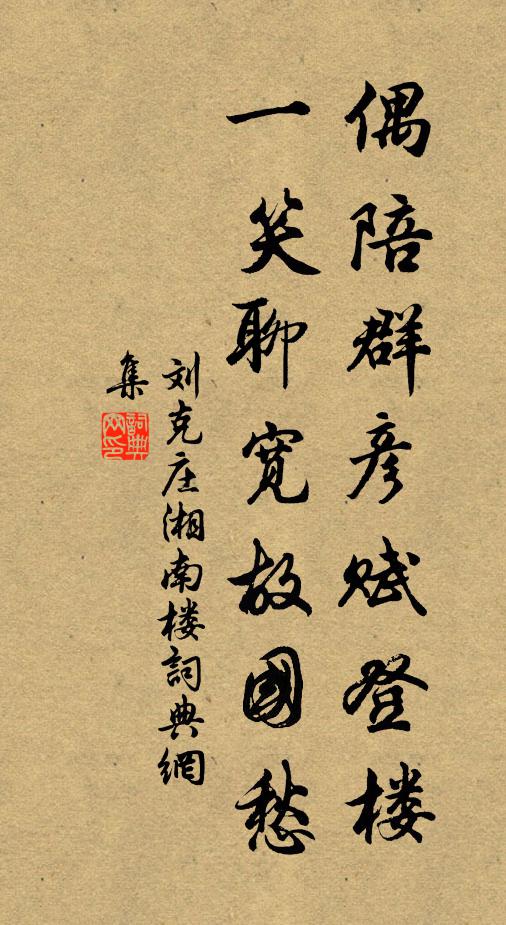 偶陪群彦赋登楼
一笑聊宽故國愁
刘克庄湘南楼詞典網
集
詞典網印